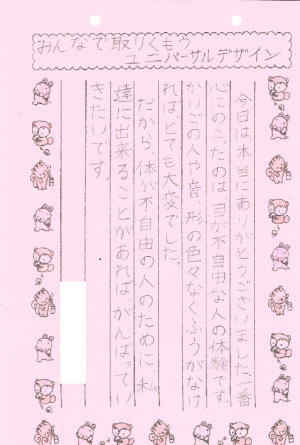 みんなで取りくもう
ユニバーサルデザイン
今日は本当にありがとうございました。一番
心にのこったのは、目が不自由な人の体験です。
かいごの人や音、形の色々なくふうがなけ
ればとても大変でした。
だから、体が不自由の人のために、私
達に出来ることがあれば、がんばってい
きたいです。